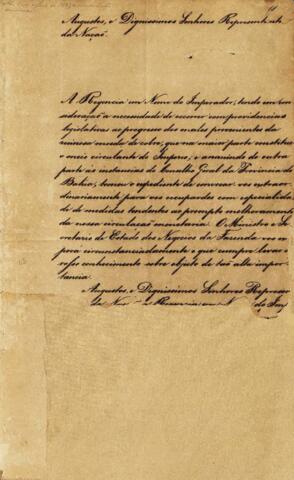 11
Augustos, e Dignissimos Senhores Representantes
da Nação
A Regencia em Nome do Imperador, tendo em con
sideração a necessidade de occorrer com providencias
legislativas ao progresso dos males provenientes da
ruinosa moeda de cobre, que na maior parte constitue
o meio circulante do Imperio, e annuindo de outra
parte ás instancias do Conselho Geral da Provincia da
Bahia, tomou o expediente de convocar-vos extraor
dinariamente para vos occupardes com especialida
de de medidas tendentes ao prompto melhoramento
da nossa circulação monetaria. O Ministro e Se
cretario de Estado dos Negocios da Fazenda vos ex
porá circunstanciadamente o que cumpre levar a
vosso conhecimento sobre objeto de tão alta impor
tancia.
Augustos, e Dignissimos Senhores Represen
da Nação a Regencia em N do Imp